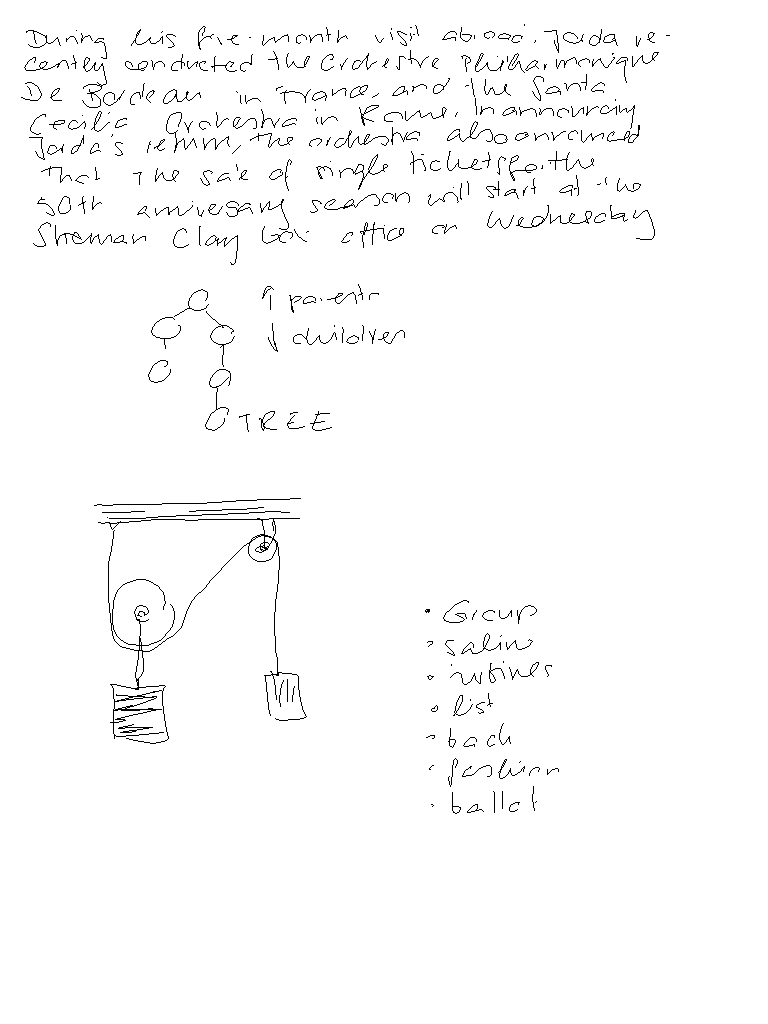 During his five-month visit abroad, Jorda re-
cently conducted the Orchestre Philharmonique
De Bordeau in France, and the Santa
Cecilia Orchestra in Rome. In announcing
Jorda's return, the orchestra also announced
that the sale of single tickets for the
50th anniversary season will start at the
Sherman Clay box office on Wednesday
↑ parents
↓ children
TREE
• Group
• salin
• routines
• list
• back
• fashion
• ballot